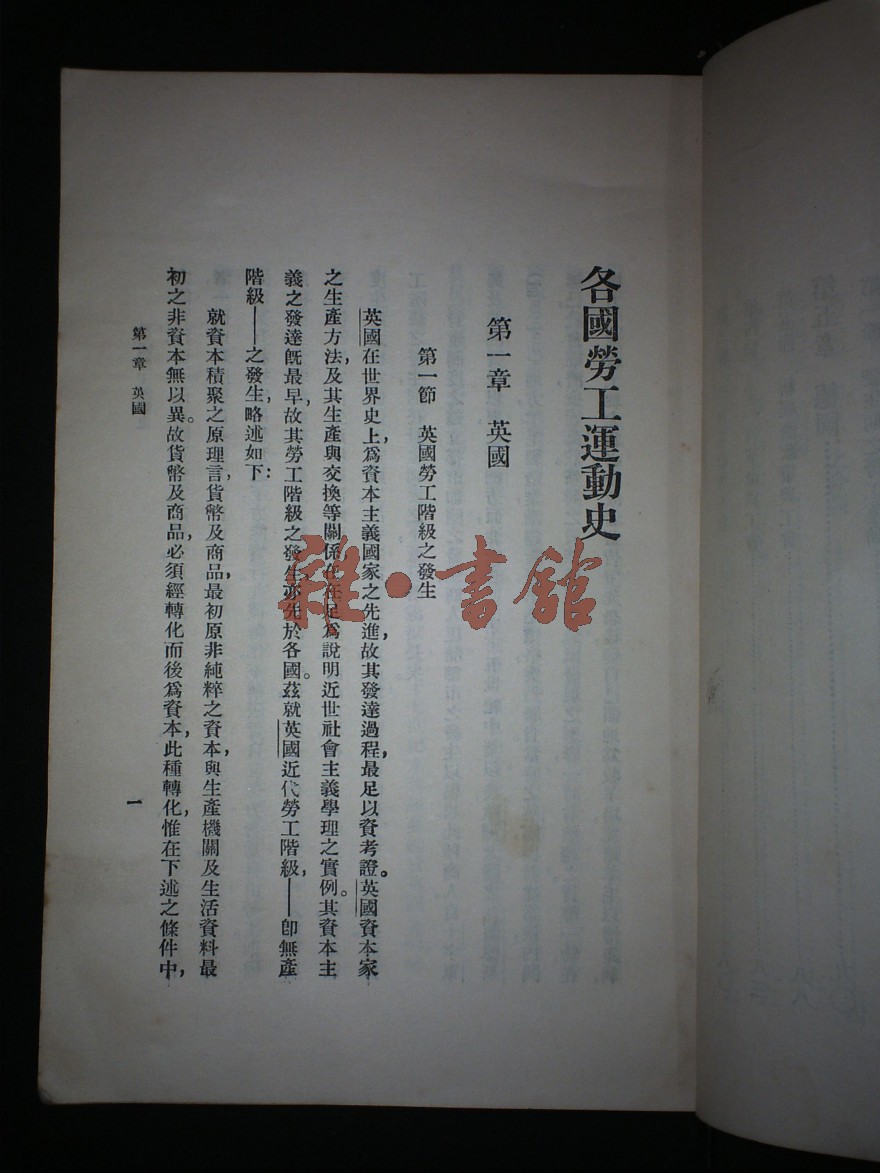 各國勞工運動史
第一章　英國
第一節　英國勞工階級之發生
英國在世界史上，爲資本主義國家之先進，故其發達過程，最足以資考證。英國資本家
之生產方法，及其生產與交換等關係，在在足爲說明近世社會主義學理之實例。其資本主
義之發達旣最早，故其勞工階級之發生，亦先於各國。茲就英國近代勞工階級，——卽無產
階級——之發生，略述如下：
就資本積聚之原理言，貨幣及商品，最初原非純粹之資本，與生產機關及生活資料最
初之非資本無以異。故貨幣及商品，必須經轉化而後爲資本，此種轉化，惟在下述之條件中，
第一章　英國
一
雜·書館